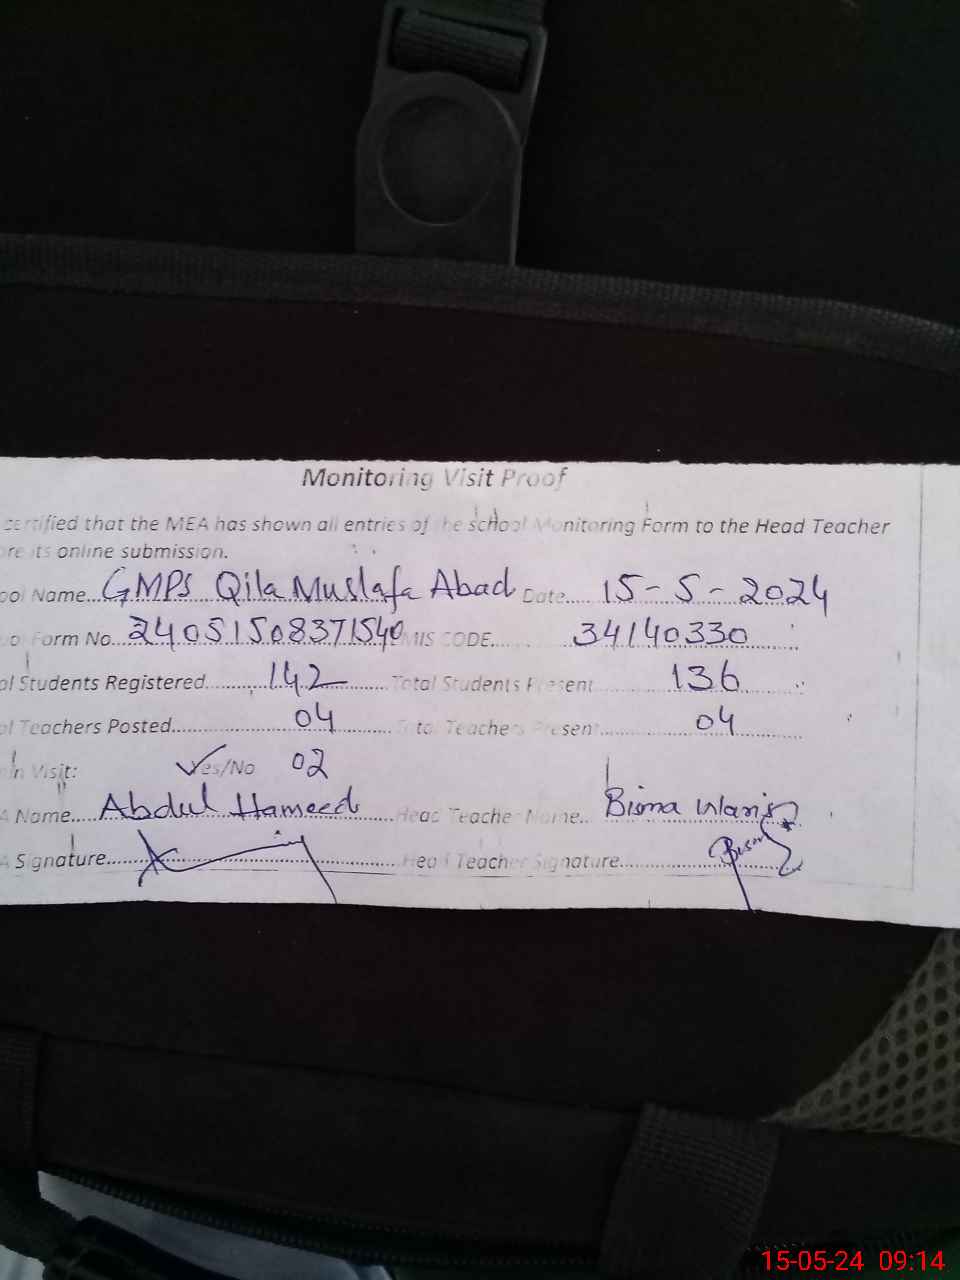 Monitoring Visit Proof
certified that the MEA has shown all entries of he school Monitoring Form to the Head Teacher
re its online submission.
ool Name...GMPS Qila Mustafa Abad Date..... 15-5-2024
o Form No...24051508371540 MIS CODE..... 34140330
ol Students Registered........142........Total Students Present 136
ol Teachers Posted........04........Total Teachers Present 04
in Visit: Yes/No 02
A Name....Abdul Hameed Head Teacher Name.. Bisma Waris
A Signature.......Head Teacher Signature.......
15-05-24 09:14